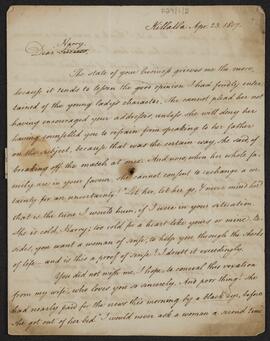 Killalla Apr. 23. 1807.
F29/1/2
Harry,
Dear
The state of your business grieves me the more,
because it tends to lessen the good opinion I had fondly enter-
tained of the young lady's character. She cannot plead her not
having encouraged your addresses, unless she will deny her
having counselled you to refrain from speaking to her father
on the subject, because that was the certain way, she said, of
breaking off the match at once. And now when her whole fa-
mily are in your favour, she cannot consent to exchange a cer-
tainty for an uncertainty! "Let her, let her go, I never mind her"
that is the tune I would hum, if I were in your situation.
She is cold, Harry; too cold for a heart like yours or mine. Be-
sides, you want a woman of sense, to help you through the shoals
of life; and is this a proof of sense? I doubt it exceedingly.
You did not wish me, I hope, to conceal this vexation
from my wife, who loves you so sincerely. And poor thing! she
had nearly paid for the news this morning by a black eye, before
she got out of her bed. "I would never ask a woman a second time